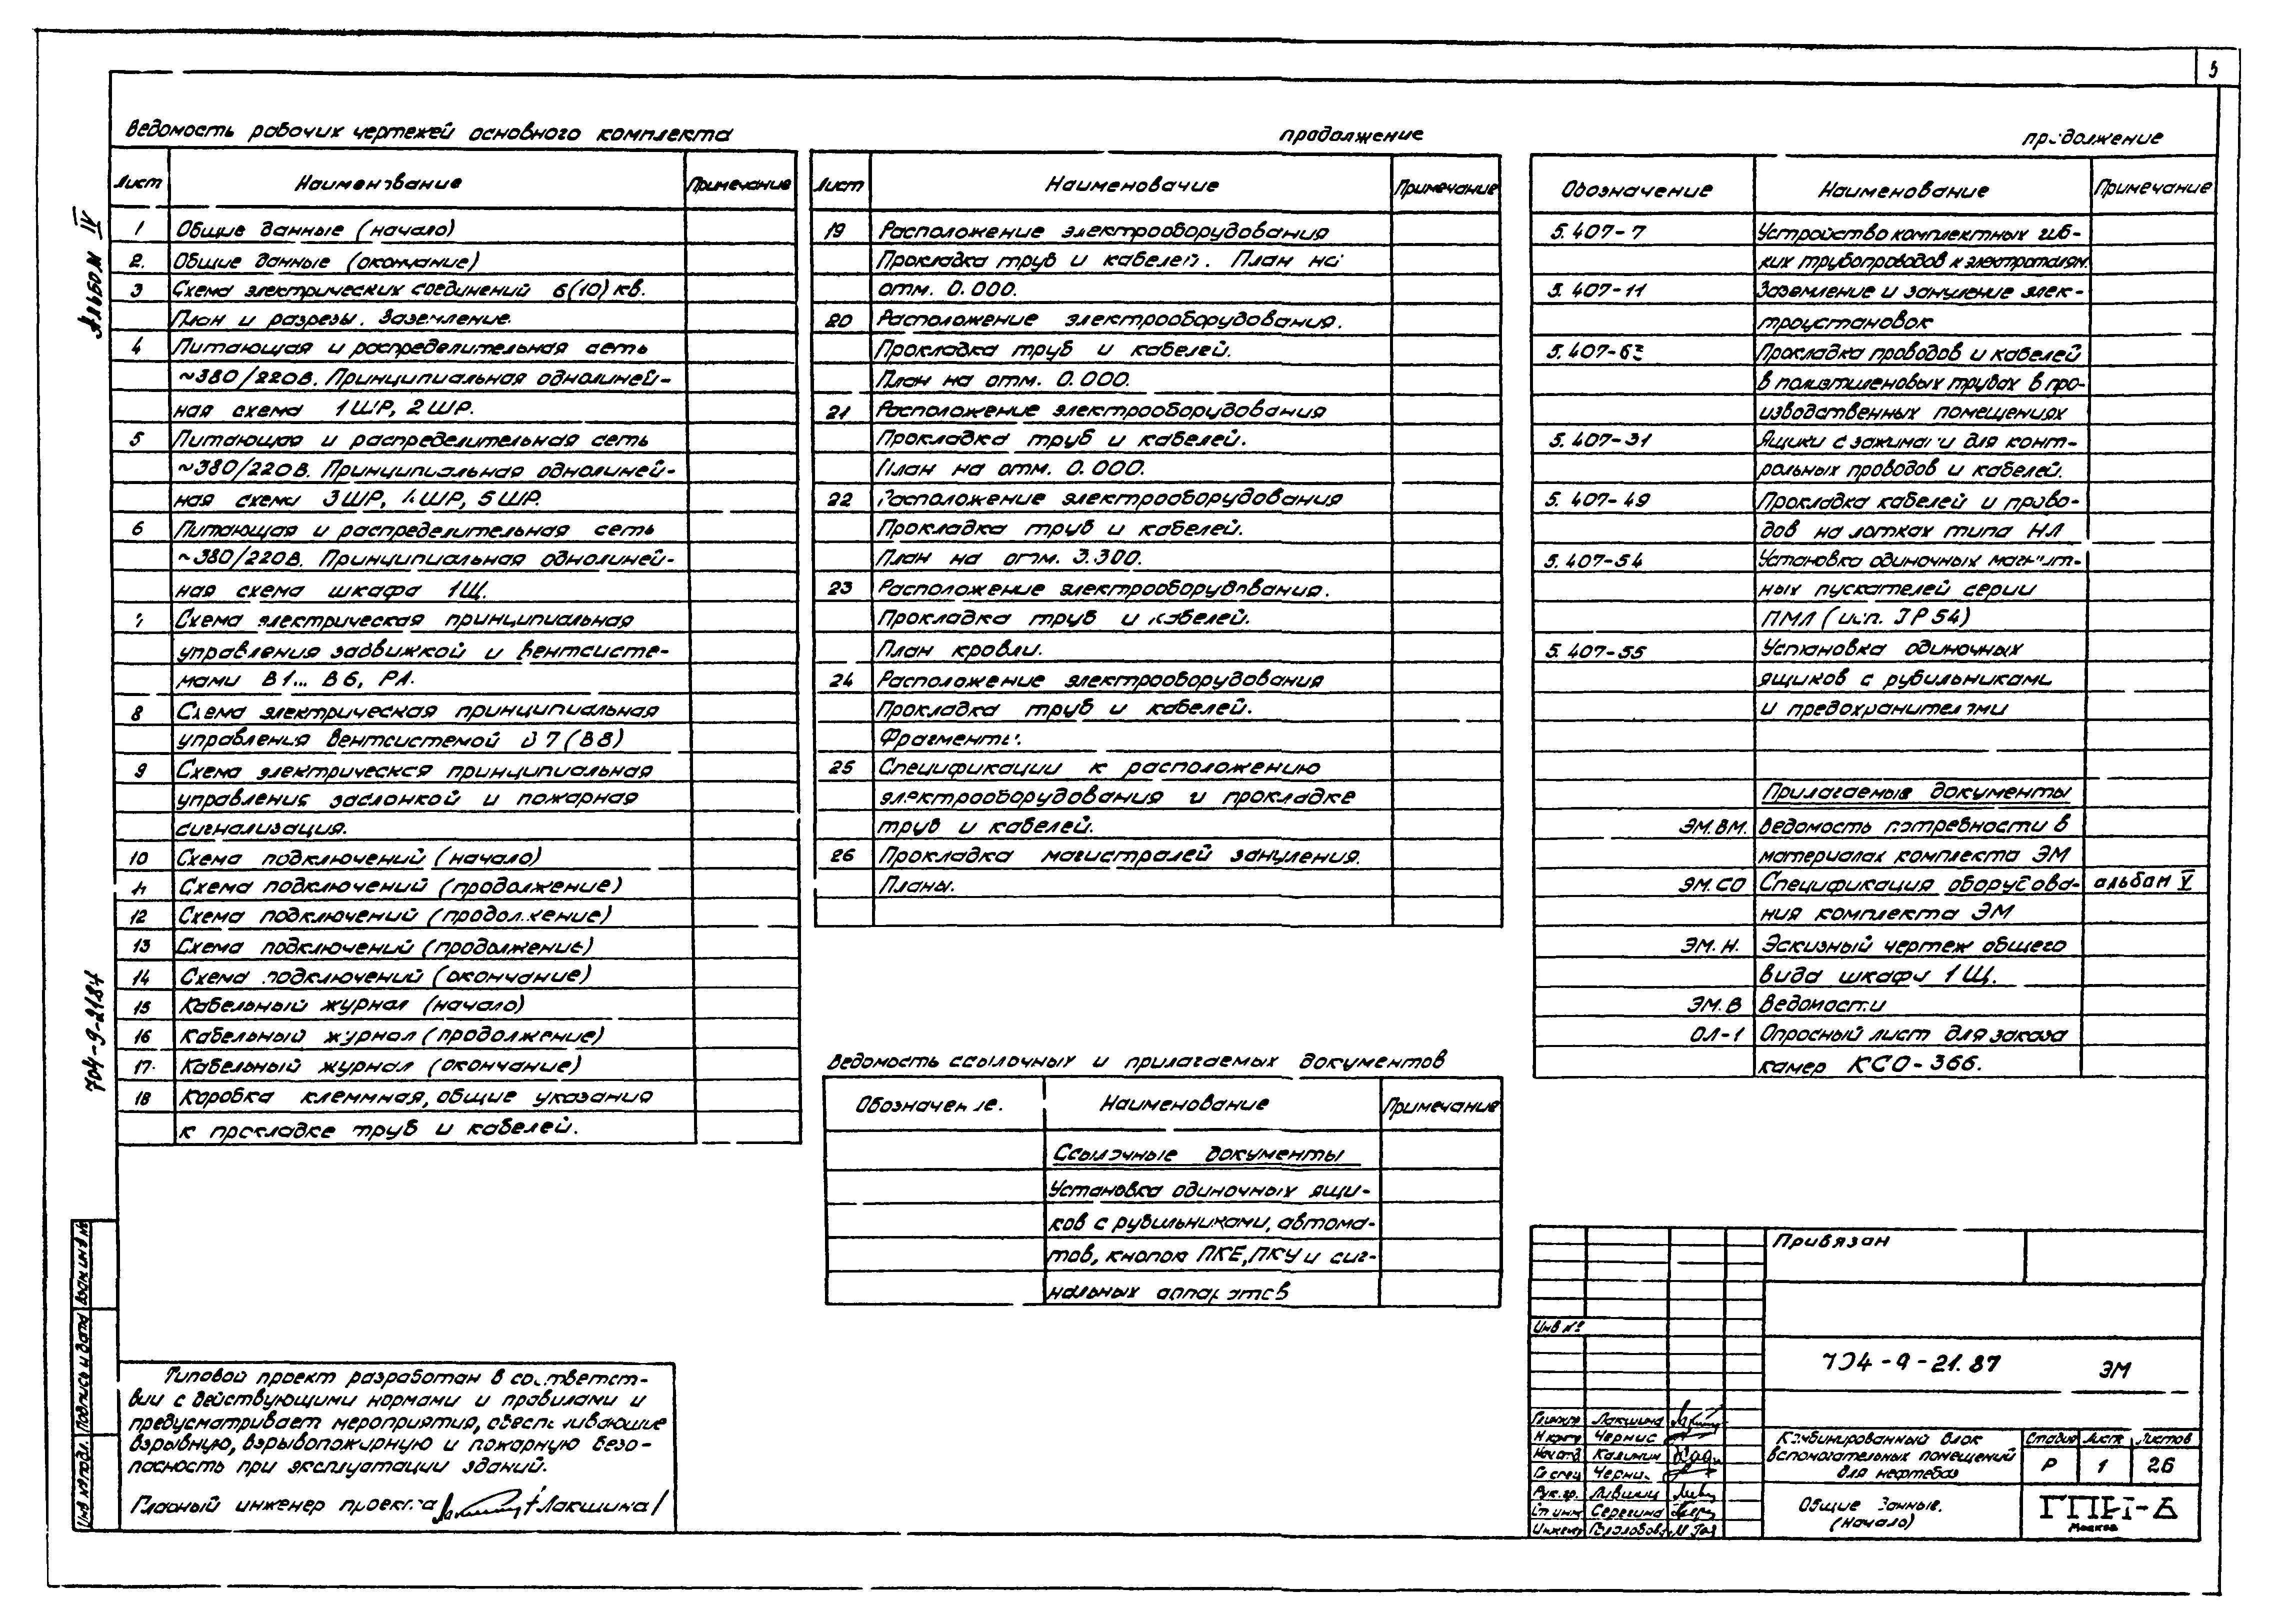 3
Альбом IV
704-9-21.87
Ведомость рабочих чертежей основного комплекта
Лист Наименование Примечание
1 Общие данные (начало)
2. Общие данные (окончание)
3 Схема электрических соединений 6(10) кв.
План и разрезы. Заземление.
4 Питающая и распределительная сеть
~380/220В. Принципиальная однолиней-
ная схема 1ШР, 2ШР.
5 Питающая и распределительная сеть
~380/220В. Принципиальная однолиней-
ная схема 3ШР, 4ШР, 5ШР.
6 Питающая и распределительная сеть
~380/220В. Принципиальная однолиней-
ная схема шкафа 1Щ.
7 Схема электрическая принципиальная
управления задвижкой и вентсисте-
мами В1... В6, Р1.
8 Схема электрическая принципиальная
управления вентсистемой В7(В8)
9 Схема электрическая принципиальная
управления заслонкой и пожарная
сигнализация.
10 Схема подключений (начало)
11 Схема подключений (продолжение)
12 Схема подключений (продолжение)
13 Схема подключений (продолжение)
14 Схема подключений (окончание)
15 Кабельный журнал (начало)
16 Кабельный журнал (продолжение)
17. Кабельный журнал (окончание)
18 Коробка клеммная, общие указания
к прокладке труб и кабелей.
продолжение
Лист Наименование Примечание
19 Расположение электрооборудования
Прокладка труб и кабелей. План на
отм. 0.000.
20 Расположение электрооборудования.
Прокладка труб и кабелей.
План на отм. 0.000.
21 Расположение электрооборудования
Прокладка труб и кабелей.
План на отм. 0.000.
22 Расположение электрооборудования
Прокладка труб и кабелей.
План на отм. 3.300.
23 Расположение электрооборудования.
Прокладка труб и кабелей.
План кровли.
24 Расположение электрооборудования
Прокладка труб и кабелей.
Фрагменты.
25 Спецификации к расположению
электрооборудования и прокладке
труб и кабелей.
26 Прокладка магистралей зануления.
Планы.
Ведомость ссылочных и прилагаемых документов
Обозначение. Наименование Примечание
Ссылочные документы
Установка одиночных ящи-
ков с рубильниками, автома-
тов, кнопок ПКЕ, ПКУ и сиг-
нальных аппаратов
продолжение
Обозначение Наименование Примечание
5.407-7 Устройство комплектных гиб-
ких трубопроводов к электроталям.
5.407-11 Заземление и зануление элек-
троустановок
5.407-63 Прокладка проводов и кабелей
в полиэтиленовых трубах в про-
изводственных помещениях
5.407-31 Ящики с зажимами для конт-
рольных проводов и кабелей.
5.407-49 Прокладка кабелей и прово-
дов на лотках типа НЛ
5.407-54 Установка одиночных магнит-
ных пускателей серии
ПМЛ (исп. IP54)
5.407-55 Установка одиночных
ящиков с рубильниками
и предохранителями
Прилагаемые документы
ЭМ.ВМ. Ведомость потребности в
материалах комплекта ЭМ
ЭМ.СО Спецификация оборудова- альбом V
ния комплекта ЭМ
ЭМ.Н. Эскизный чертеж общего
вида шкафа 1Щ.
ЭМ.В Ведомости
ОЛ-1 Опросный лист для заказа
камер КСО-366.
Типовой проект разработан в соответст-
вии с действующими нормами и правилами и
предусматривает мероприятия, обеспечивающие
взрывную, взрывопожарную и пожарную безо-
пасность при эксплуатации зданий.
Главный инженер проекта /Лакшина/
Инв № подл. Подпись и дата Взам инв №
Привязан
Инв №
704-9-21.87 ЭМ
Гл инж пр Лакшина
Н контр Чернис
Нач отд Калинин
Гл спец Чернис
Рук. гр.
Ст инж Серегина
Инженер
Комбинированный блок
вспомогательных помещений
для нефтебаз
Стадия Лист Листов
Р 1 26
Общие данные.
(Начало)
ГПИ-6
Москва